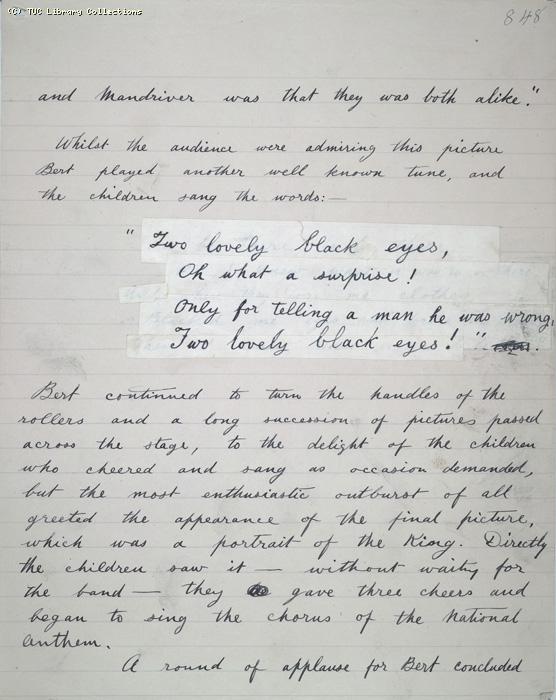 (C) TUC Library Collections
848
and Mandriver was that they was both alike."
Whilst the audience were admiring this picture
Bert played another well known tune, and
the children sang the words:—
" Two lovely black eyes,
Oh what a surprise!
Only for telling a man he was wrong,
Two lovely black eyes! "
Bert continued to turn the handles of the
rollers and a long succession of pictures passed
across the stage, to the delight of the children
who cheered and sang as occasion demanded,
but the most enthusiastic outburst of all
greeted the appearance of the final picture,
which was a portrait of the King. Directly
the children saw it — without waiting for
the band — they gave three cheers and
began to sing the chorus of the National
Anthem.
A round of applause for Bert concluded